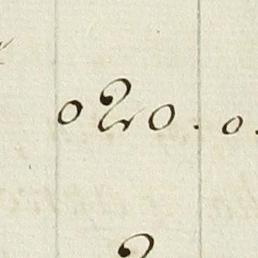 020.0.
2